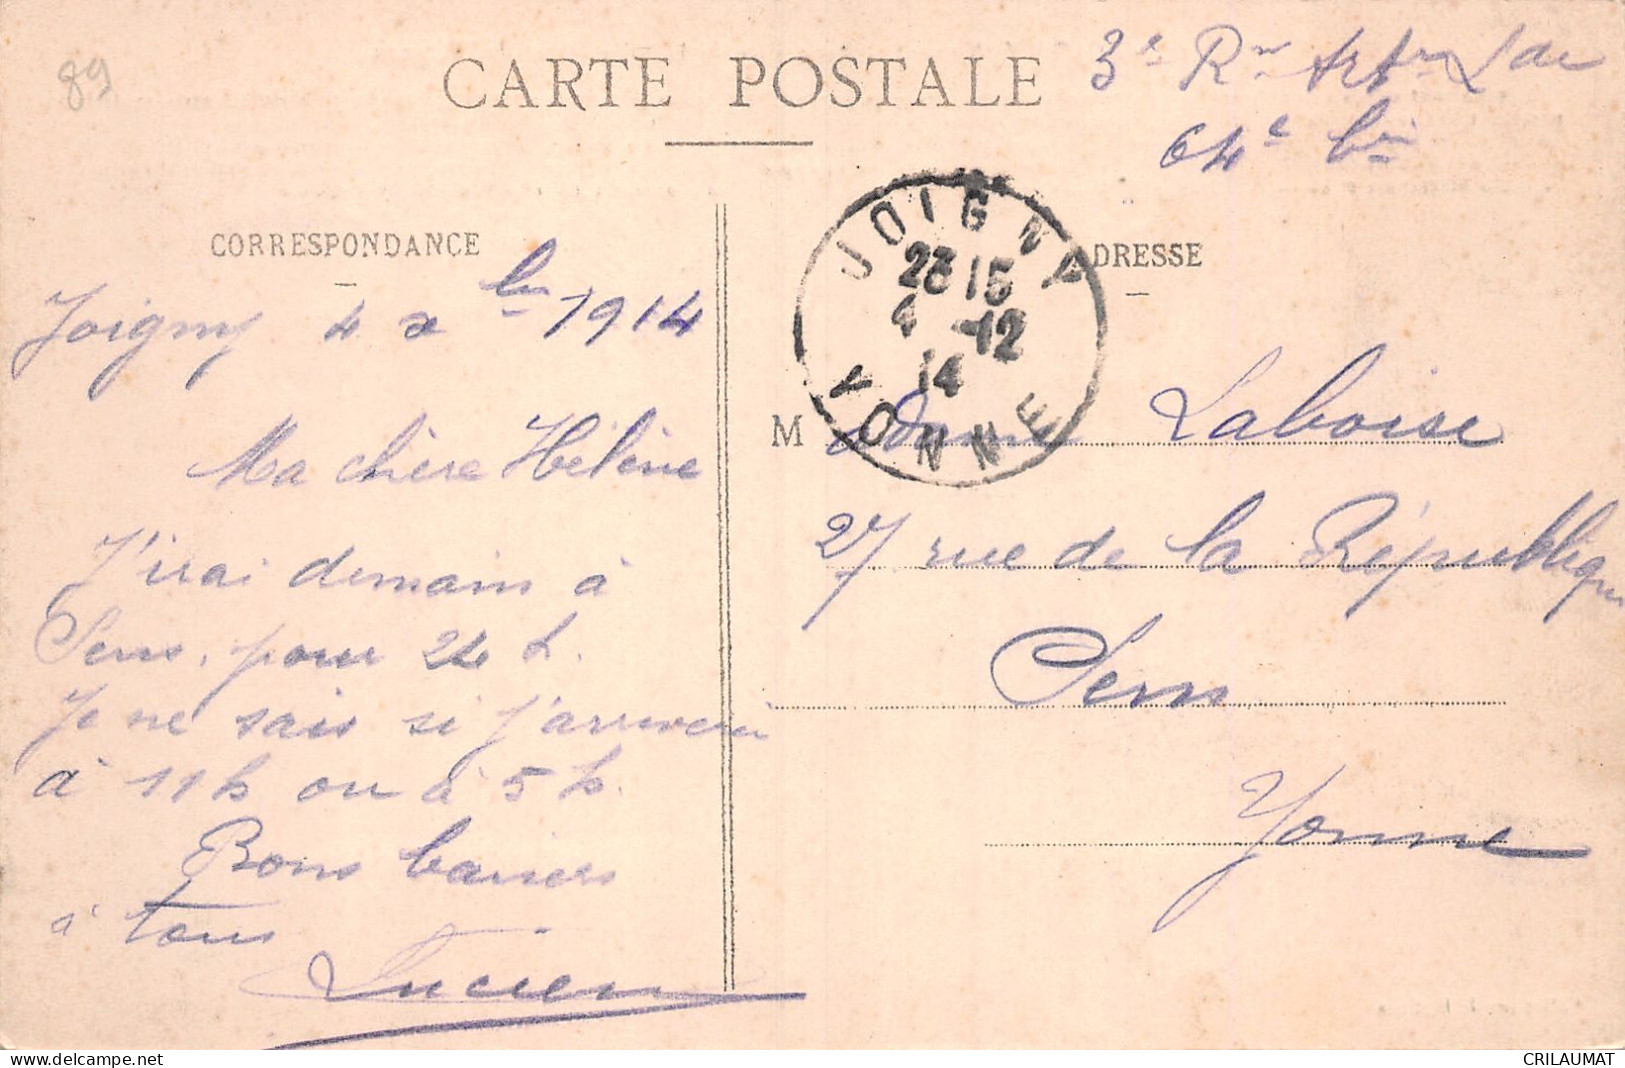 89
CARTE POSTALE
3e Rn Art
64e bie
CORRESPONDANCE
ADRESSE
JOIGNY
23 15
4 -12
14
YONNE
Joigny 4 Xbre 1914
Ma chère Hélène
J'irai demain à
Sens, pour 24 h.
Je ne sais si j'arriverai
à 11h ou à 5 h.
Bons baisers
à tous
Lucien
Madame Laboise
27 rue de la République
Sens
Yonne
CRILAUMAT